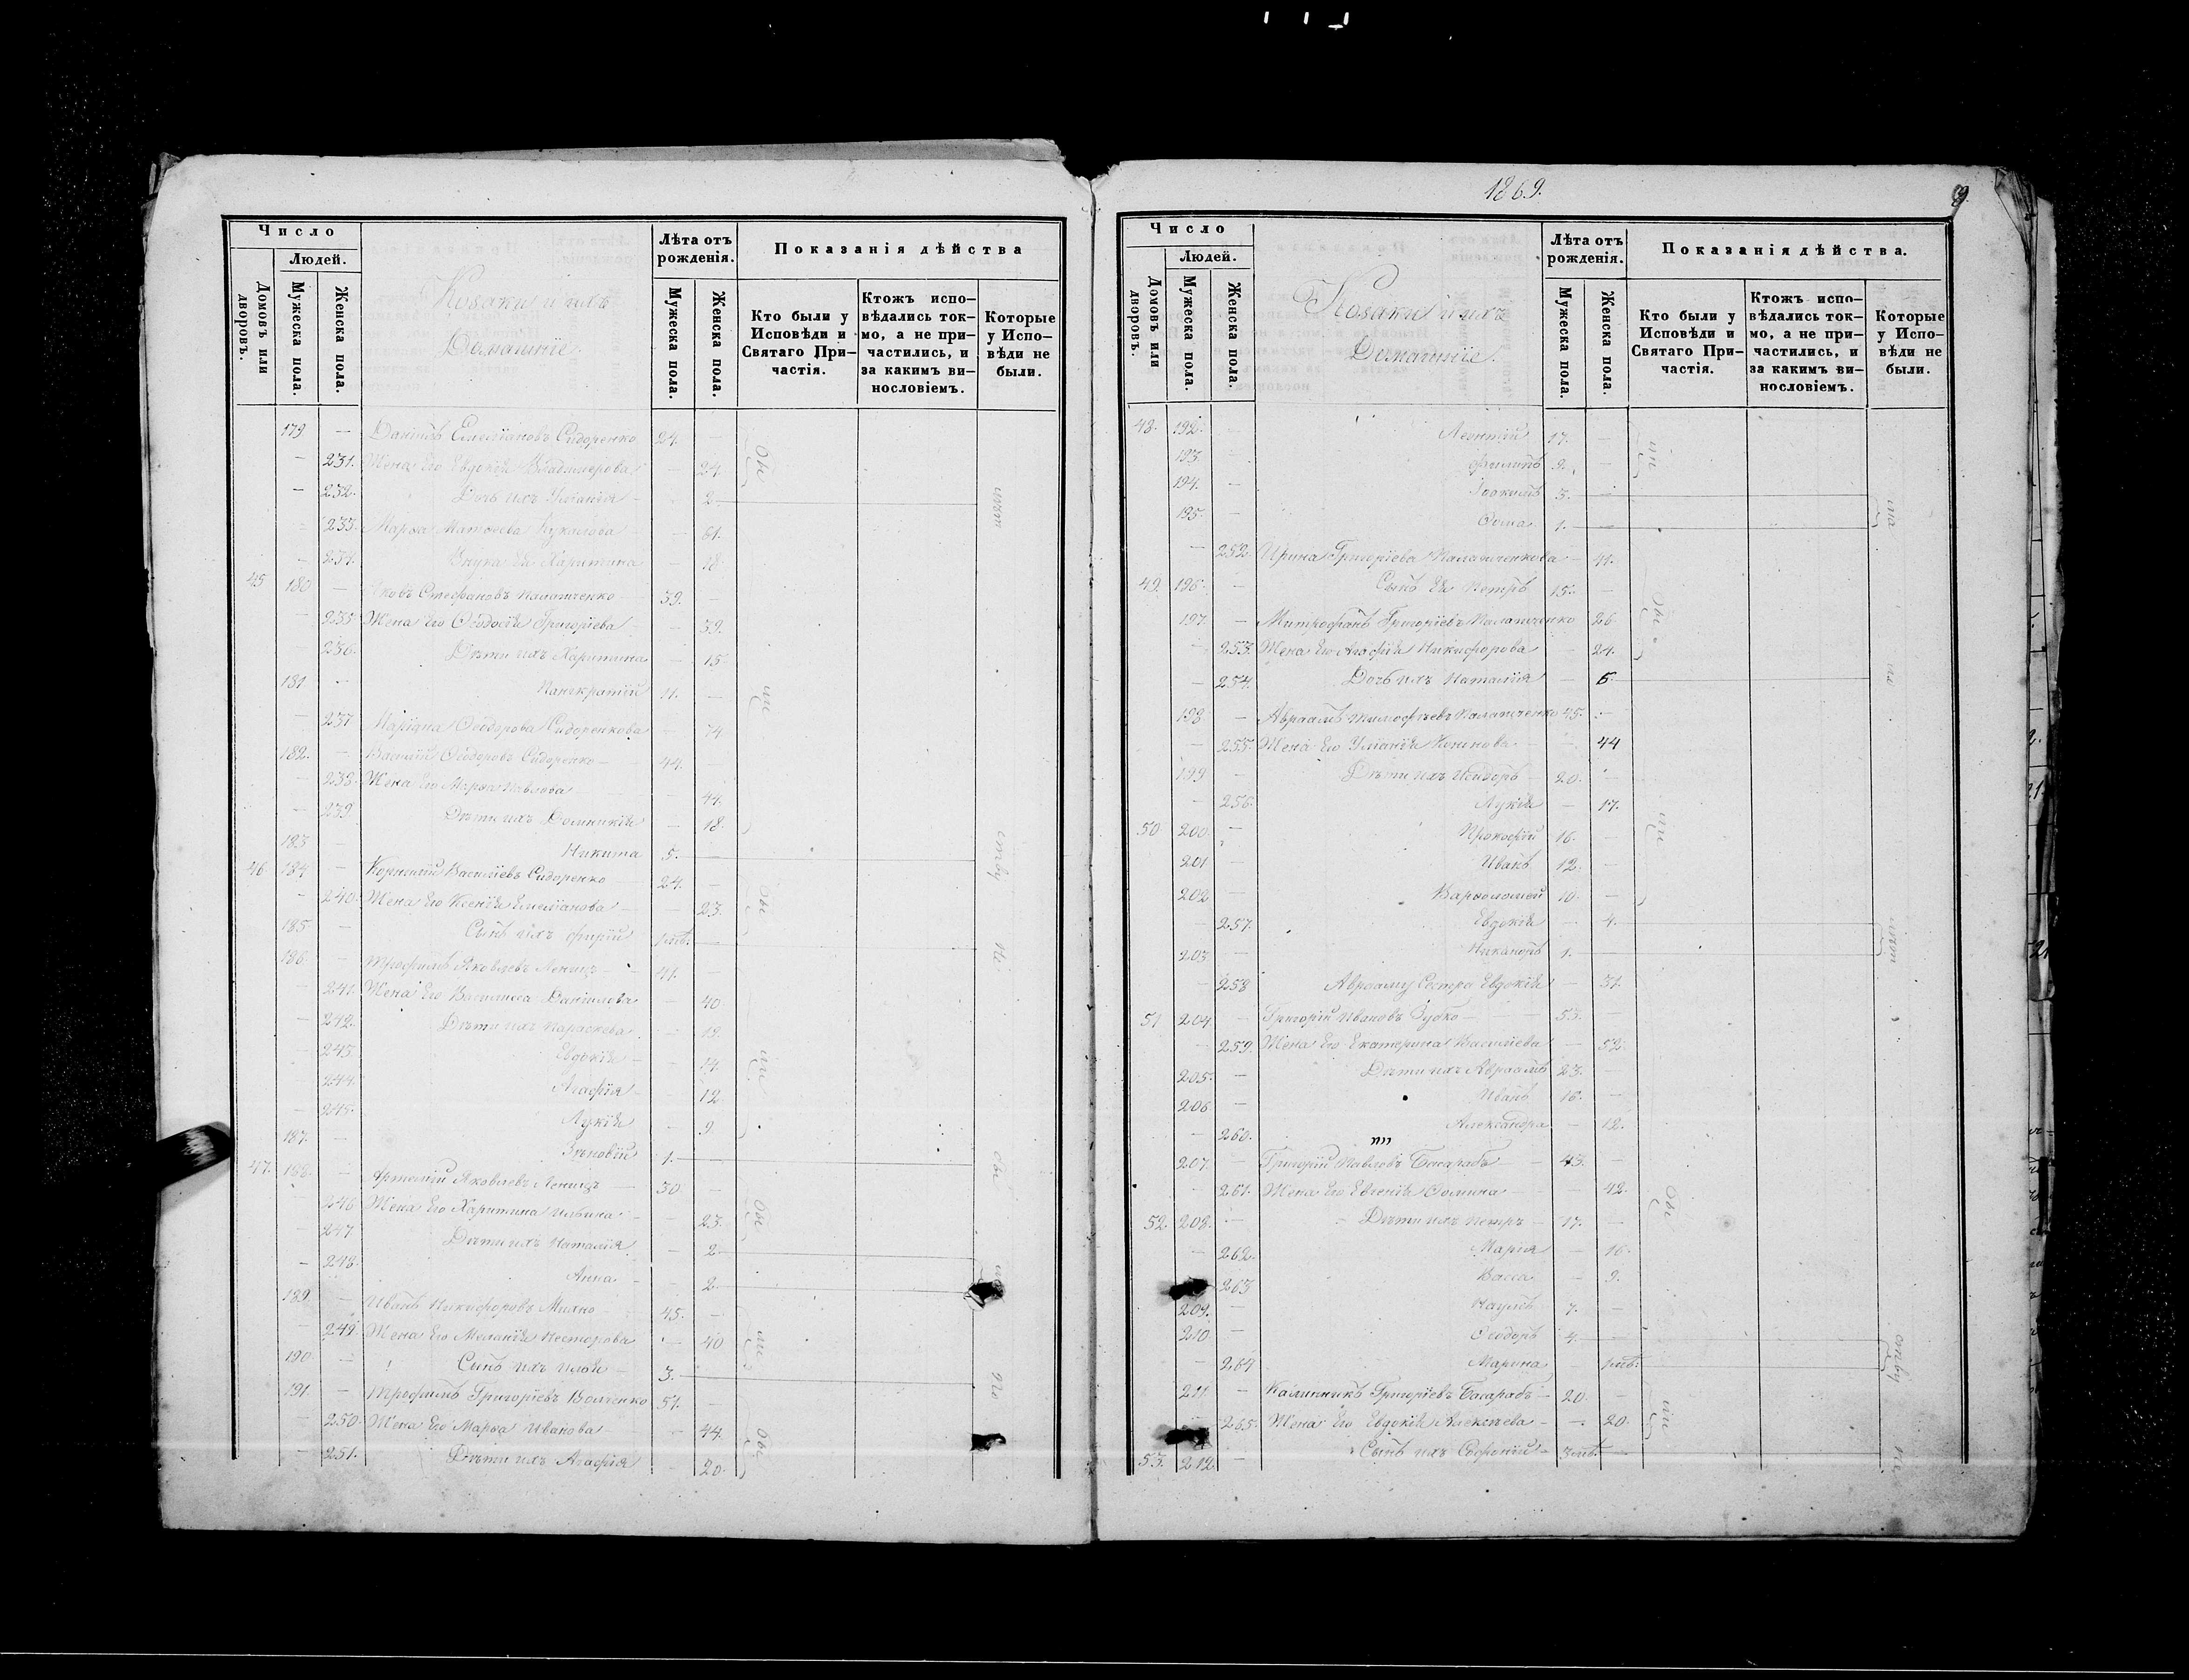 Число
Людей.
Домовъ или дворовъ.
Мужеска пола.
Женска пола.
Козаки и ихъ
Домашніе.
Лѣта отъ рожденія.
Мужеска пола.
Женска пола.
Показанія дѣйства
Кто были у Исповѣди и Святаго Причастія.
Ктожъ исповѣдались токмо, а не причастились, и за какимъ винословіемъ.
Которые у Исповѣди не были.
179 — Даніилъ Емеліановъ Сидоренко 24. —
— 231. Жена его Евдокія Владимерова — 24.
— 232. Дочь ихъ Уліанія — 2
— 233. Марѳа Матѳеева — 61.
— 234. Внука ея Харитина — 18
45 180 — Яковъ Стефановъ Палатченко 39. —
— 235 Жена его Ѳеодосія Григоріева — 39.
— 236. Дѣти ихъ Харитина — 15
181 — Панкратій 11. —
— 237 Маріана Ѳеодорова Сидоренкова — 74
182. — Василій Ѳеодоровъ Сидоренко — 44. —
— 238. Жена его Марѳа Павлова — 44.
— 239 Дѣти ихъ Домникія — 18.
183 — Никита 5. —
46 184 — Корнилій Василіевъ Сидоренко 24. —
— 240. Жена его Ксенія Емеліанова — 23.
185 — Сынъ ихъ Фирій 1мѣ. —
186. — Трофимъ Яковлевъ 41. —
— 241. Жена его Василисса Даніилова — 40
— 242. Дѣти ихъ Параскева — 19.
— 243 Евдокія — 14.
— 244. Агафія — 12
— 245. Лукія — 9
187. — Зѣновій 1. —
47. 188. — Артемій Яковлевъ 30 —
— 246 Жена его Харитина Ильина — 23.
— 247 Дѣти ихъ Наталія — 2
— 248. Анна — 2
189. — Иванъ Никифоровъ Михно 45. —
— 249. Жена его Меланія Несторова — 40
190 — Сынъ ихъ Илія 3. —
191. — Трофимъ Григоріевъ Волченко 51. —
— 250. Жена его Марѳа Иванова — 44.
— 251. Дѣти ихъ Агафія — 20.
1869.
Число
Людей.
Домовъ или дворовъ.
Мужеска пола.
Женска пола.
Козаки и ихъ
Домашніе.
Лѣта отъ рожденія.
Мужеска пола.
Женска пола.
Показанія дѣйства.
Кто были у Исповѣди и Святаго Причастія.
Ктожъ исповѣдались токмо, а не причастились, и за какимъ винословіемъ.
Которые у Исповѣди не были.
48. 192. — Леонтій 17. —
193. — Филипъ 9. —
194. — Іоакимъ 3. —
195. — Ѳома 1. —
— 252 Ирина Григоріева Палатченкова — 41.
49. 196. — Сынъ ея Петръ 15. —
197. — Митрофанъ Григоріевъ Палатченко 26 —
— 253. Жена его Агафія Никифорова — 24.
— 254. Дочь ихъ Наталія — 5.
198 — Авраамъ Тимофѣевъ Палатченко 45. —
— 255. Жена его Уліанія Кононова — 44
199 — Дѣти ихъ Исидоръ 20. —
— 256. Лукія — 17.
50 200. — Прокофій 16. —
201 — Иванъ 12. —
202 — Варѳоломей 10. —
— 257. Евдокія — 4.
203 — Никаноръ 1. —
— 258 Авраама Сестра Евдокія — 31.
51 204. — Григорій Ивановъ Зубко 53. —
— 259. Жена его Екатерина Василіева — 52
205. — Дѣти ихъ Авраамъ 23. —
206 — Иванъ 16. —
— 260. Александра — 12.
207. — Григорій Павловъ Басарабъ 43. —
— 261. Жена его Евгенія Ѳомина — 42.
52 208. — Дѣти ихъ Петръ 17. —
— 262. Марія — 16.
— 263 Васса — 9.
209. — Наумъ 7. —
210 — Ѳеодоръ 4. —
— 264 Марина — 1мѣ.
211 — Калинникъ Григоріевъ Басарабъ 20. —
— 265. Жена его Евдокія Алексѣева — 20.
53. 212. — Сынъ ихъ Софроній 3мѣ. —